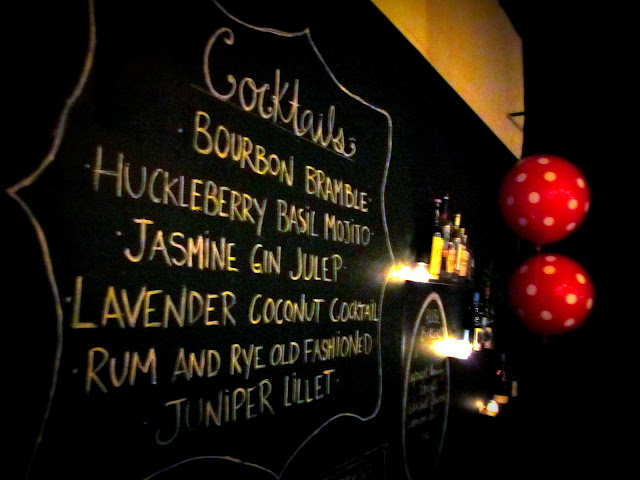 Cocktails
BOURBON BRAMBLE
HUCKLEBERRY BASIL MOJITO
JASMINE GIN JULEP
LAVENDER COCONUT COCKTAIL
RUM AND RYE OLD FASHIONED
JUNIPER LILLET